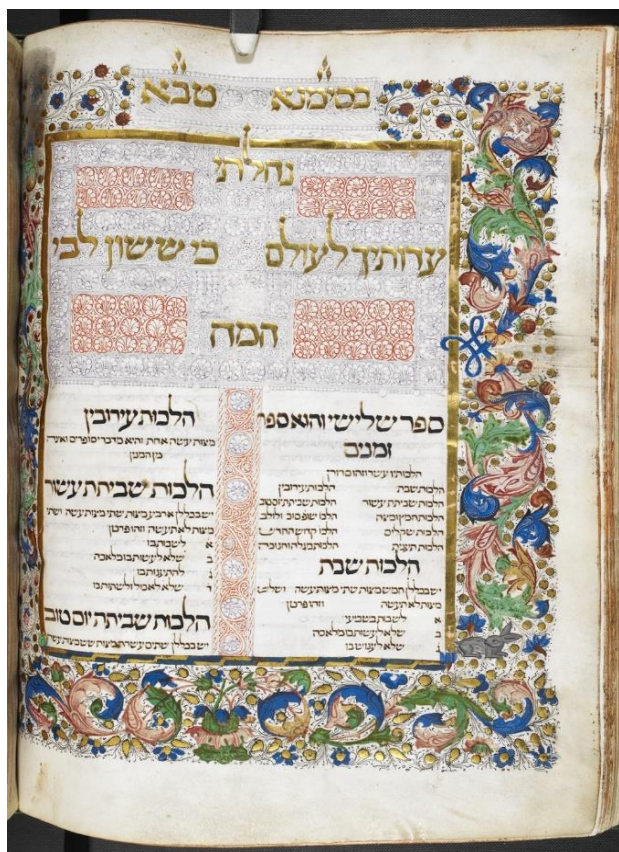 בסימנא טבא
נחלתי
עדותיך לעולם כי ששון לבי
המה
ספר שלישי והוא ספר
זמנים
הלכותיו עשר וזהו סדורן
הלכות שבת הלכות עירובין
הלכות שביתת עשור הלכות שביתת יום טוב
הלכות חמץ ומצה הלכו שופר ולולב
הלכות שקלים הלכו קדוש החדש
הלכות תעניות הלכות מגלה וחנוכה
הלכות שבת
יש בכללן חמש מצות שתי מצות עשה
מצות לא תעשה וזהו פרטן
א לשבות בשביעי
ב שלא לעשות בו מלאכה
ג שלא לענוש בו
הלכות עירובין
מצות עשה אחת והיא מדברי סופרים ואינה
מן המנין
הלכות שביתת עשור
יש בכללן ארבע מצות שתי מצות עשה ושתי
מצות לא תעשה וזהו פרטן
א לשבות בו
ב שלא לעשות בו מלאכה
ג להתענות בו
ד שלא לאכול ולשתות בו
הלכות שביתת יום טוב
יש בכללן שתים עשרה מצות שש מצות עשה